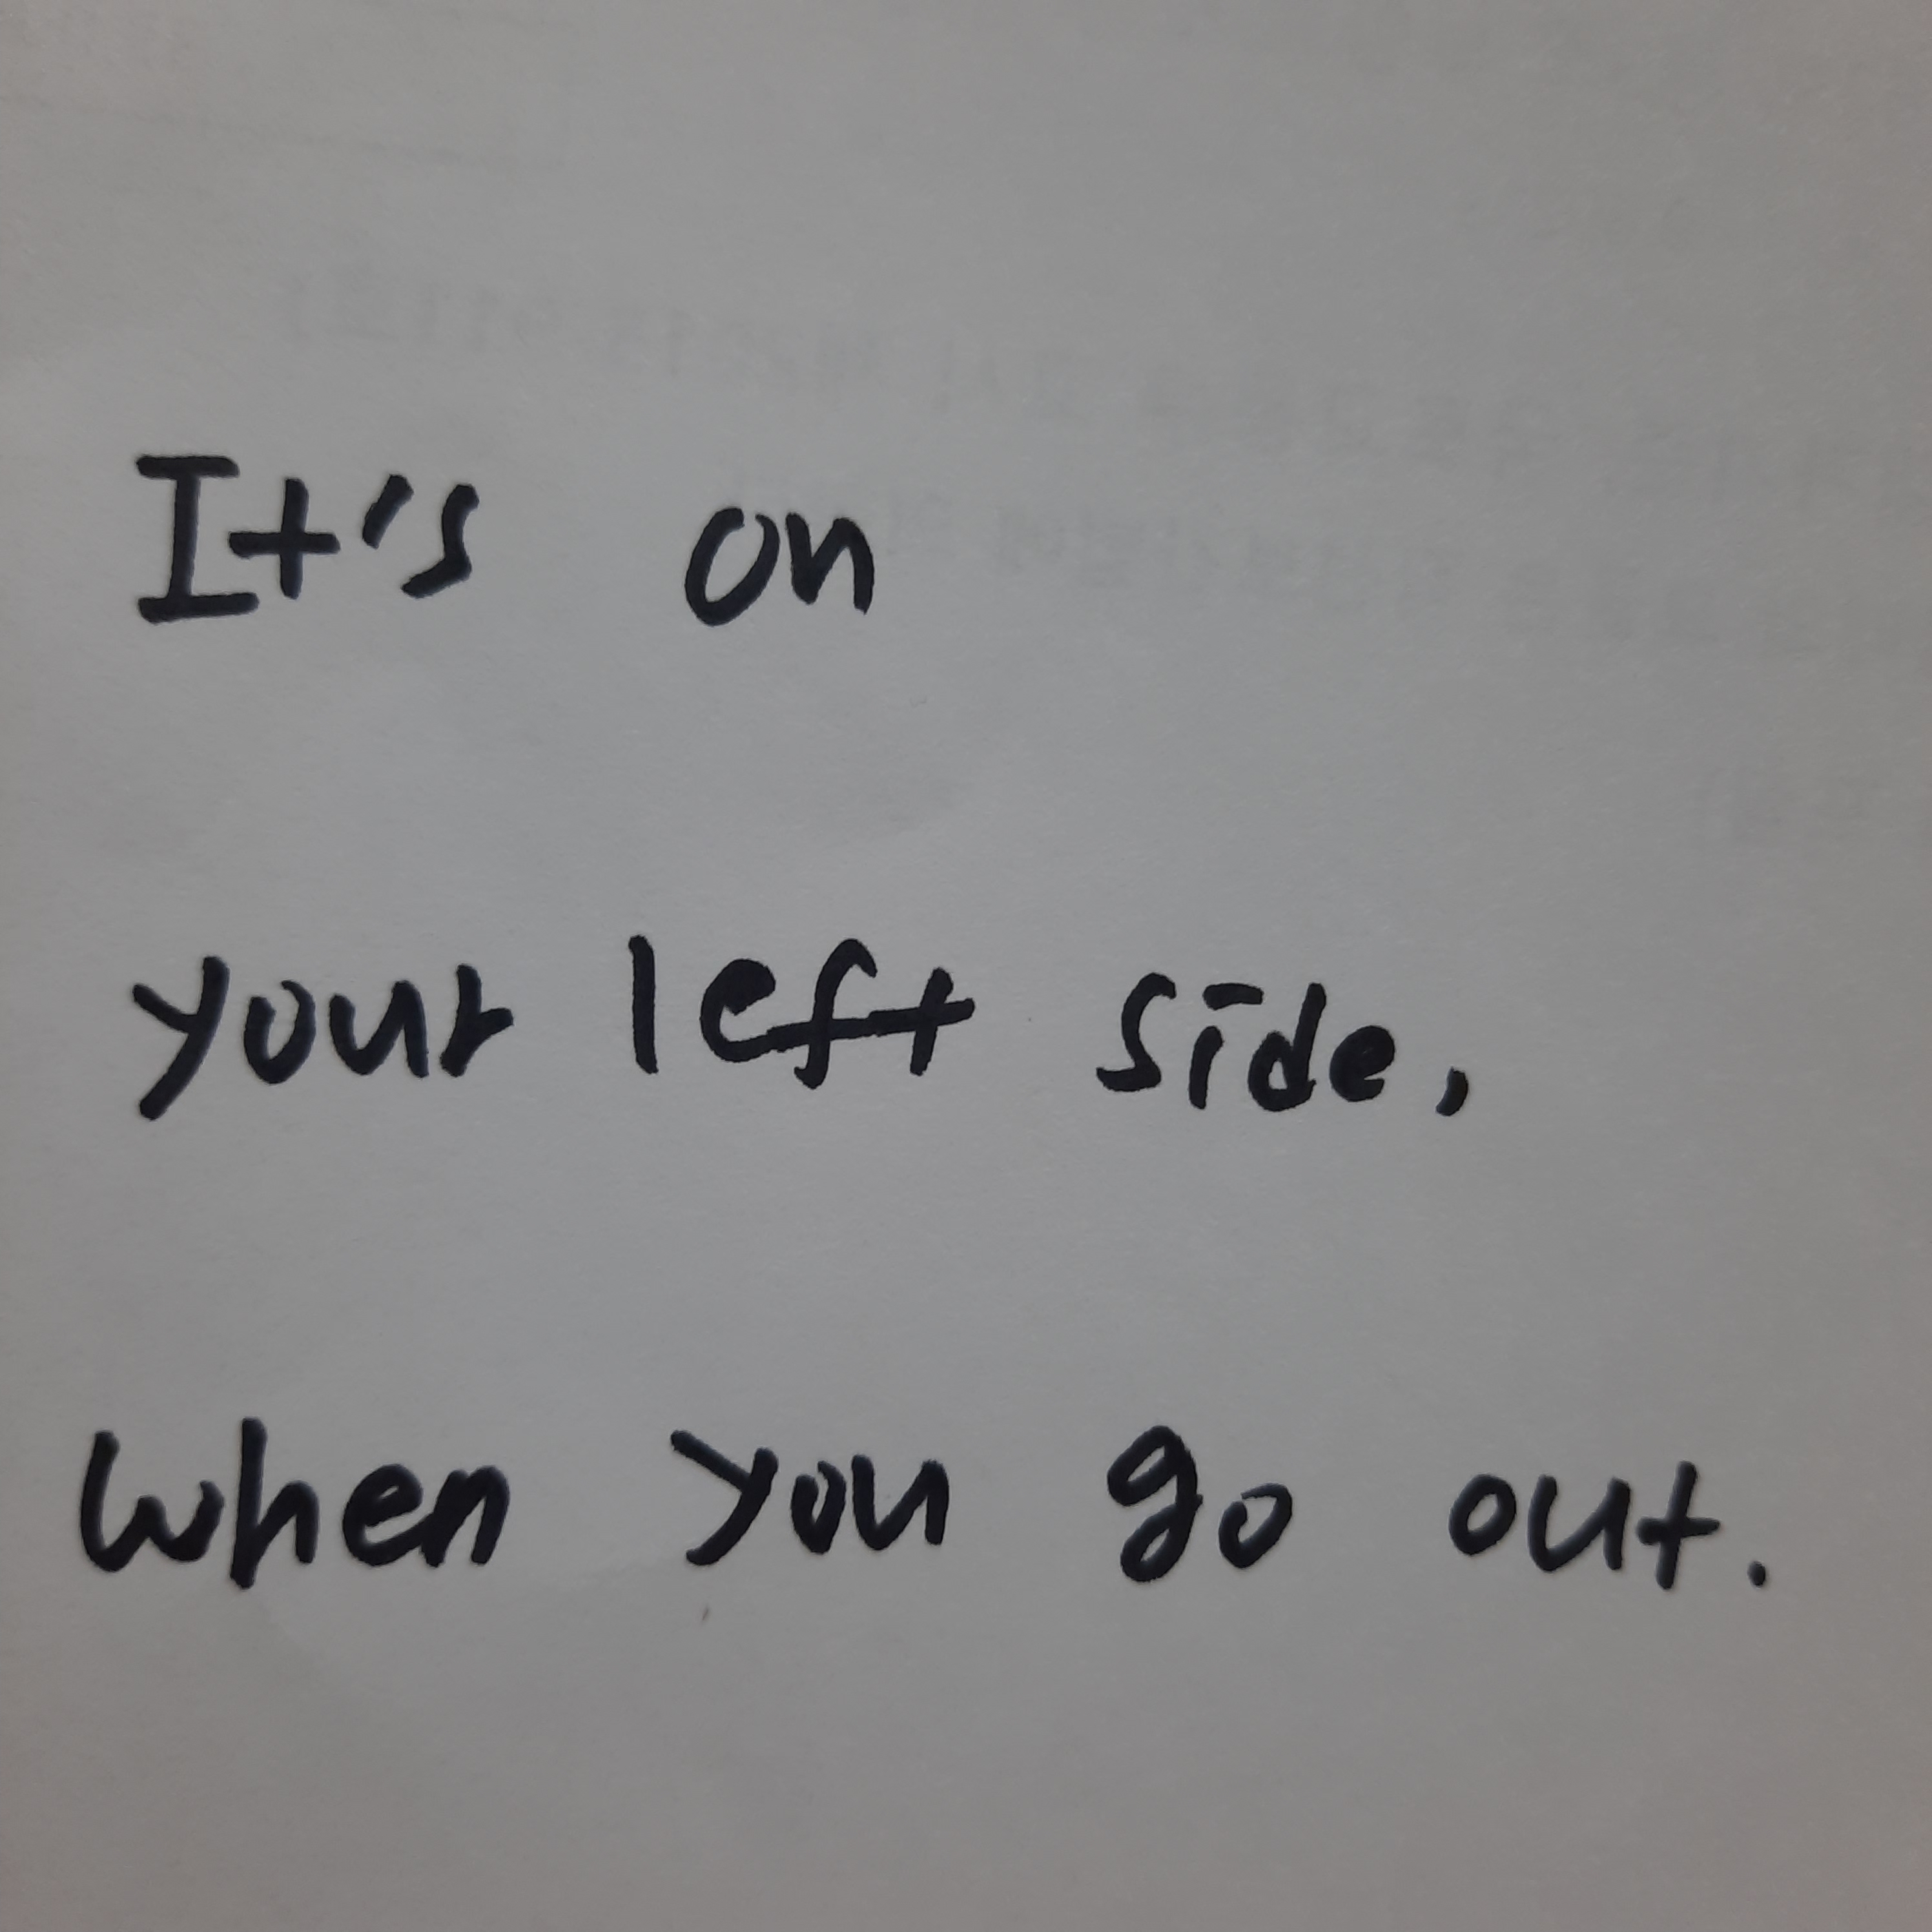 It's on
your left side,
when you go out.